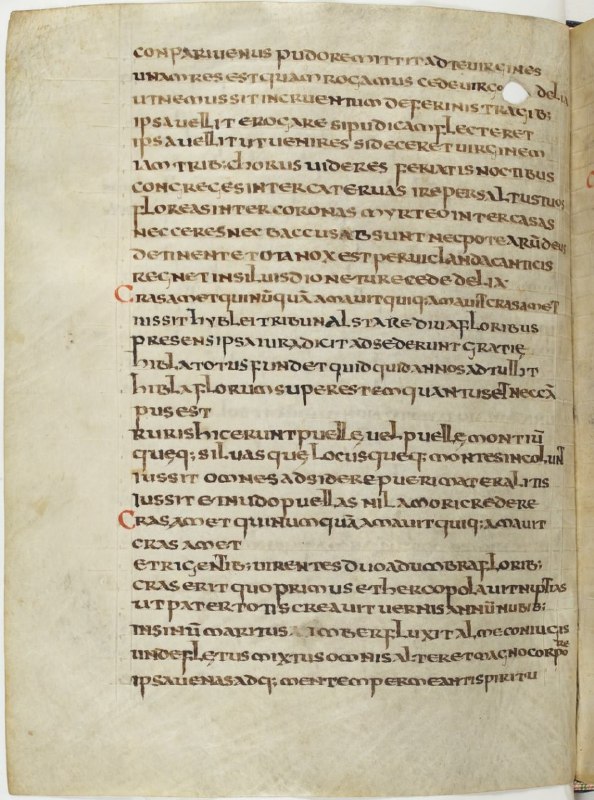 CONPARIVENUS PUDOREMITTITADTEUIRGINES
UNAMRESESTQUAMROGAMUS CEDEUIRGO DELIA
UTNEMUSSITINCRUENTUMDEFERINISTRAGIB;
IPSAUELLITEROGARESIPUDICAMFLECTERET
IPSAUELLITUTUENIRESSIDECERETUIRGINEM
IAMTRIB;CHORUSUIDERES FERIATISNOCTIBUS
CONGREGESINTERCATERUAS IREPERSALTUSTUOS
FLOREASINTERCORONAS MYRTEOINTERCASAS
NECCERESNEC BACCUSABSUNTNECPOTEARŪDEUS
DETINENTETOTANOXESTPERUICLANDACANTICIS
REGNETINSILUISDIONETURECEDEDELIA
CRASAMETQUINŪQUĀAMAUITQUIQ;AMAUITCRASAMET
IUSSITHYBLEITRIBUNALSTAREDIUAFLORIBUS
PRESENSIPSAIURADICITADSEDERUNTGRATIĘ
HIBLATOTUSFUNDETQUIDQUIDANNOSADTULLIT
HIBLAFLORUMSUPERESTEMQUANTUSETNECCĀ
PUSEST
RURISHICERUNTPUELLĘUELPUELLĘMONTIŪ
QUĘQ;SILUASQUĘLOCUSQUEQ;MONTESINCOLUNT
IUSSITOMNESADSIDEREPUERIMATERALITIS
IUSSITETINUDOPUELLASNILAMORICREDERE
CRASAMETQUINUMQUĀAMAUITQUIQ;AMAUIT
CRASAMET
ETRIGENTIB;UIRENTESDUOADUMBRAFLORIB;
CRASERITQUOPRIMUSETHERCOPOLAUITNUPTIAS
UTPATERTOTISCREAUITUERNISANNŪNUBIB;
INSINŪMARITUS IMBERFLUXITALMECONIUGIS
UNDEFLETUSMIXTUSOMNISALTERETMAGNOCORPORE
IPSAUENASADQ;MENTEMPERMEANTISPIRITU